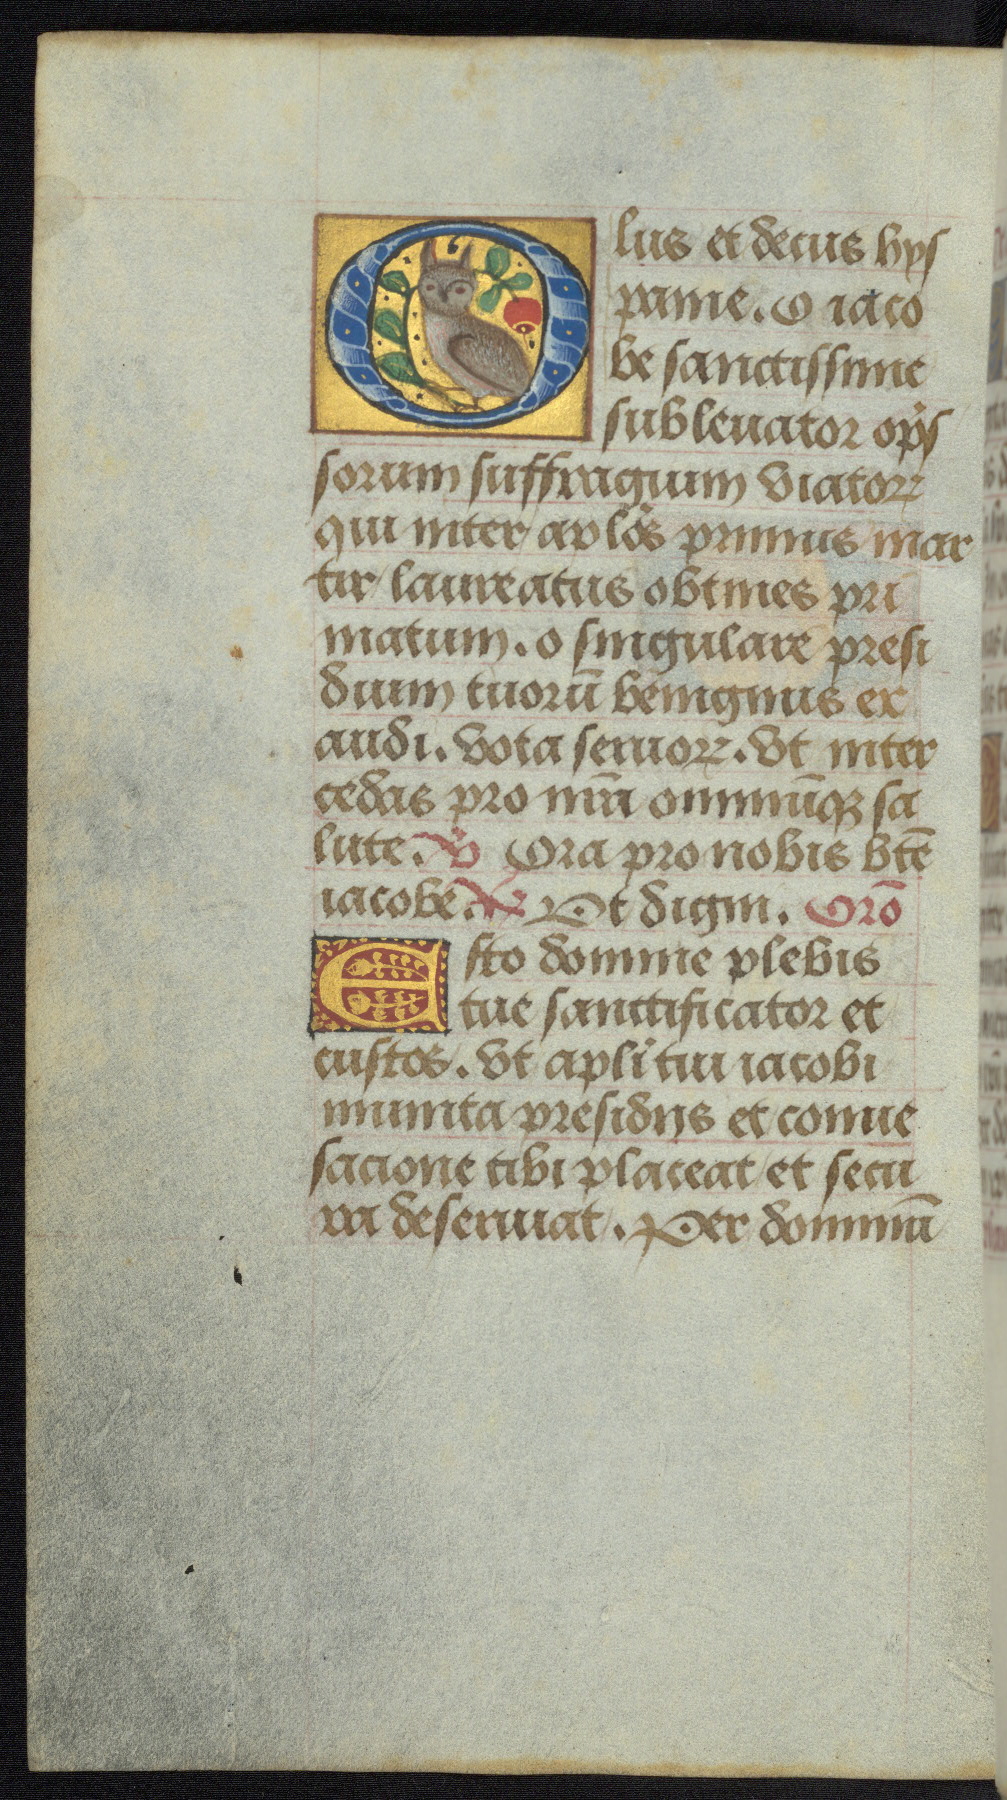 Olus et decus hys
panie. O iaco
be sanctissime
subleuator op̄s
sorum suffragium viatoꝝ
qui inter apl̄os primus mar
tir laureatus obtines pri
matum. o singulare presi
dium tuorū benignus ex
audi. vota seruoꝝ. vt inter
cedas pro nr̄a omniūqꝫ sa
lute. ℣ Ora pro nobis bt̄e
iacobe. ℟ Vt digni. Orō
Esto domine plebis
tue sanctificator et
custos. vt apl̄i tui iacobi
munita presidijs et conue
sacione tibi placeat et secu
ra deseruiat. Per dominū